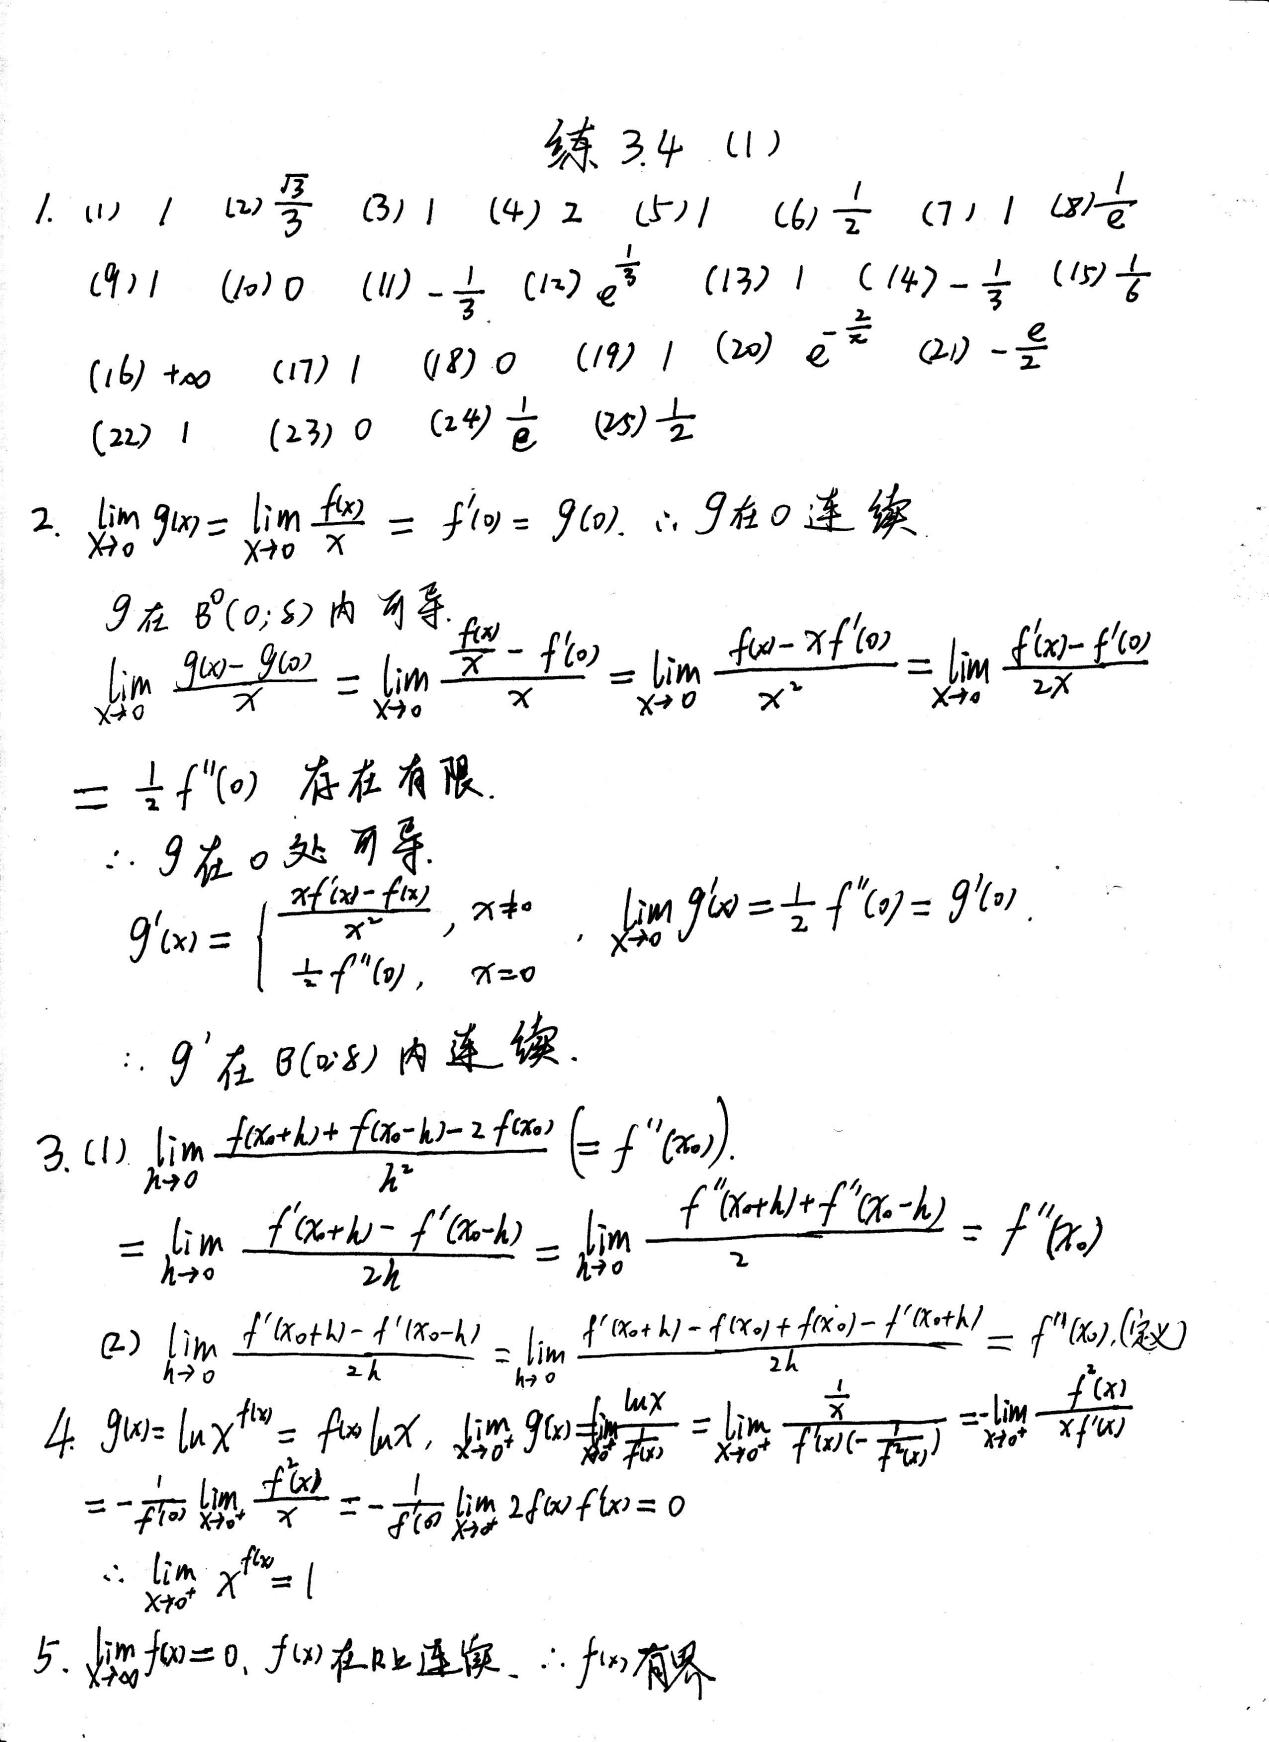 练 3.4 (1)
1. (1) 1 (2) √3/3 (3) 1 (4) 2 (5) 1 (6) 1/2 (7) 1 (8) 1/e
(9) 1 (10) 0 (11) -1/3 (12) e^(1/3) (13) 1 (14) -1/3 (15) 1/6
(16) +∞ (17) 1 (18) 0 (19) 1 (20) e^(-2/π) (21) -e/2
(22) 1 (23) 0 (24) 1/e (25) 1/2
2. lim_{x→0} g(x) = lim_{x→0} f(x)/x = f'(0) = g(0). ∴ g在0连续.
g在B⁰(0;δ)内可导.
lim_{x→0} (g(x)-g(0))/x = lim_{x→0} (f(x)/x - f'(0))/x = lim_{x→0} (f(x)-xf'(0))/x² = lim_{x→0} (f'(x)-f'(0))/2x
= 1/2 f''(0) 存在有限.
∴ g在0处可导.
g'(x) = { (xf'(x)-f(x))/x², x≠0; 1/2 f''(0), x=0 . lim_{x→0} g'(x) = 1/2 f''(0) = g'(0).
∴ g'在B(0;δ)内连续.
3. (1) lim_{h→0} (f(x₀+h)+f(x₀-h)-2f(x₀))/h² (= f''(x₀)).
= lim_{h→0} (f'(x₀+h)-f'(x₀-h))/2h = lim_{h→0} (f''(x₀+h)+f''(x₀-h))/2 = f''(x₀)
(2) lim_{h→0} (f'(x₀+h)-f'(x₀-h))/2h = lim_{h→0} (f'(x₀+h)-f(x₀)+f(x₀)-f'(x₀+h))/2h = f''(x₀).(定义)
4. g(x)=ln x^{f(x)} = f(x) ln x, lim_{x→0⁺} g(x) = lim_{x→0⁺} ln x/(1/f(x)) = lim_{x→0⁺} (1/x)/(f'(x)(-1/f²(x))) = -lim_{x→0⁺} f²(x)/(xf'(x))
= -1/f'(0) lim_{x→0⁺} f²(x)/x = -1/f'(0) lim_{x→0⁺} 2f(x)f'(x) = 0
∴ lim_{x→0⁺} x^{f(x)} = 1
5. lim_{x→∞} f(x)=0, f(x)在R上连续. ∴ f(x)有界